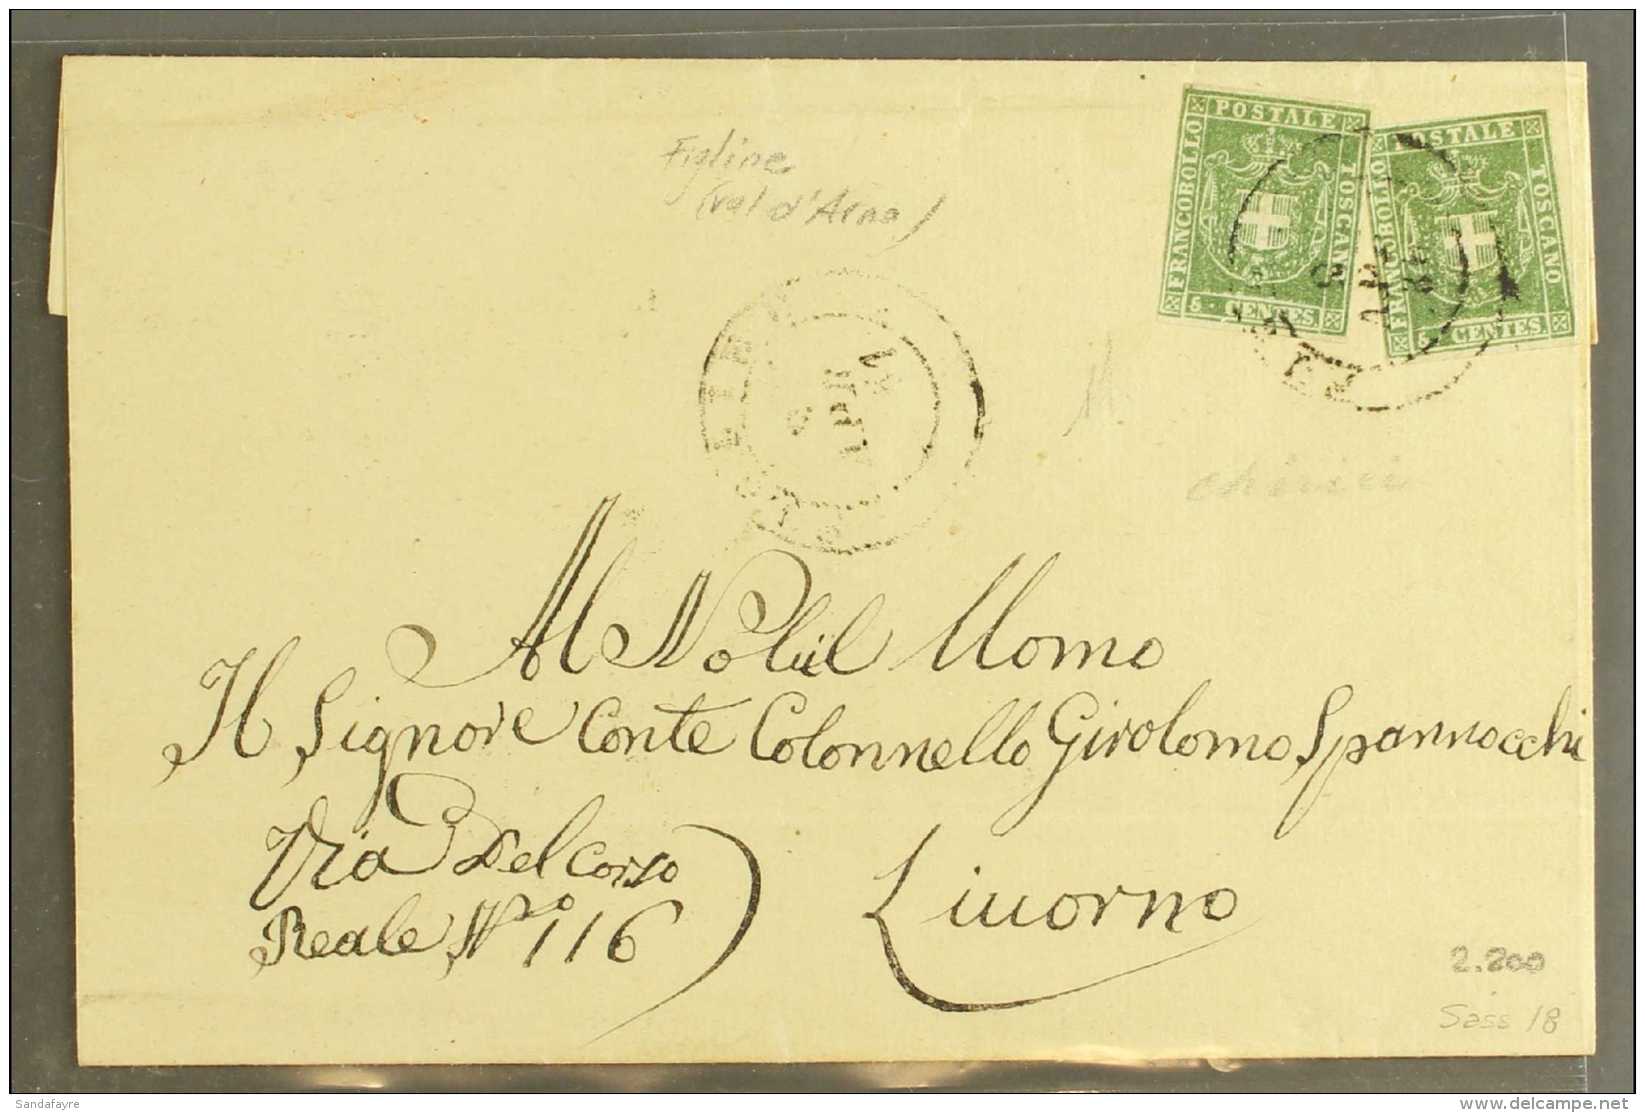 Figline
(val d'Arno)
FRANCOBOLLO POSTALE TOSCANO
5 CENTES.
FRANCOBOLLO POSTALE TOSCANO
5 CENTES.
chirici
Al Nobil Uomo
Il Signore Conte Colonnello Girolomo Spannocchi
Via Del Corso
Reale Nro 116
Livorno
2.200
Sass 18
Sandafayre
www.delcampe.net